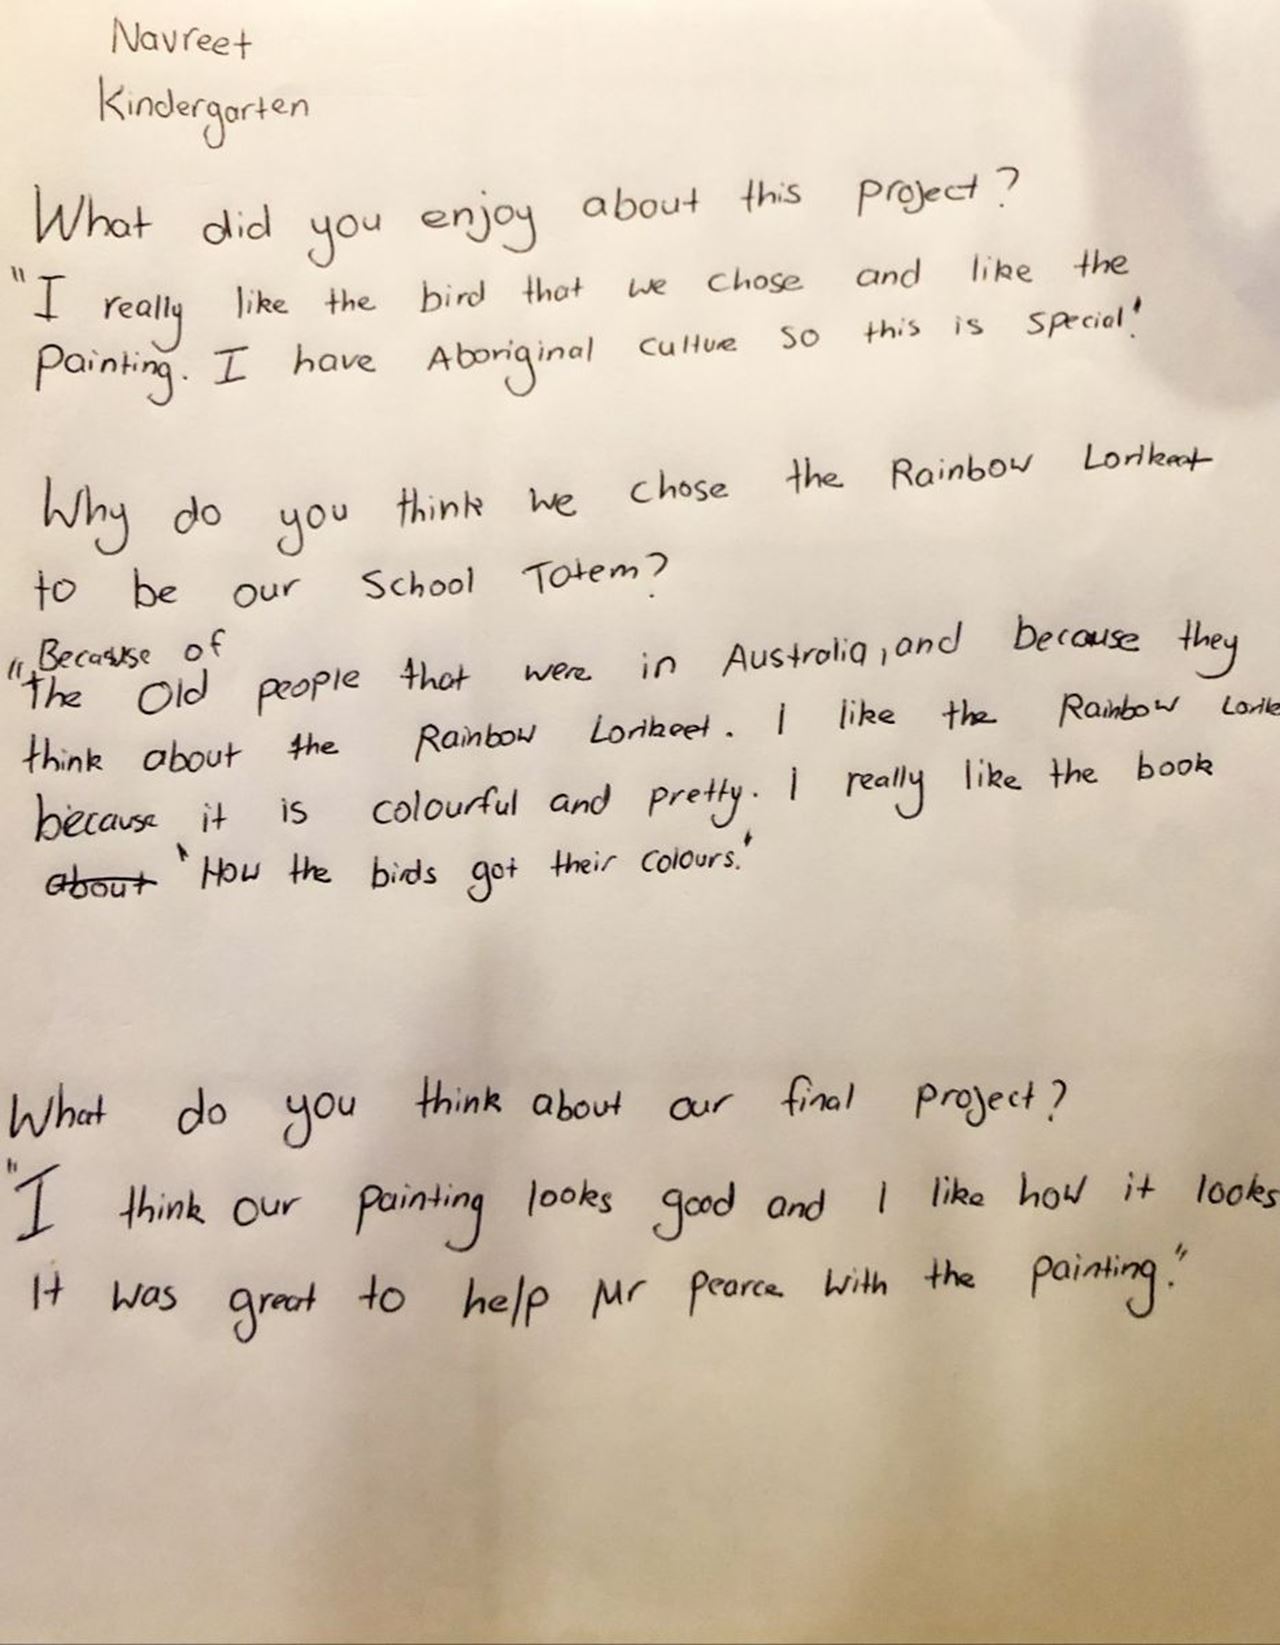 Navreet
Kindergarten
What did you enjoy about this project?
"I really like the bird that we chose and like the
Painting. I have Aboriginal culture so this is special!
Why do you think we chose the Rainbow Lorikeet
to be our School Totem?
"Because of
the Old people that were in Australia, and because they
think about the Rainbow Lorikeet. I like the Rainbow Lorike
because it is colourful and pretty. I really like the book
about 'How the birds got their colours.'
What do you think about our final project?
"I think our painting looks good and I like how it looks
It was great to help Mr Pearce with the painting."